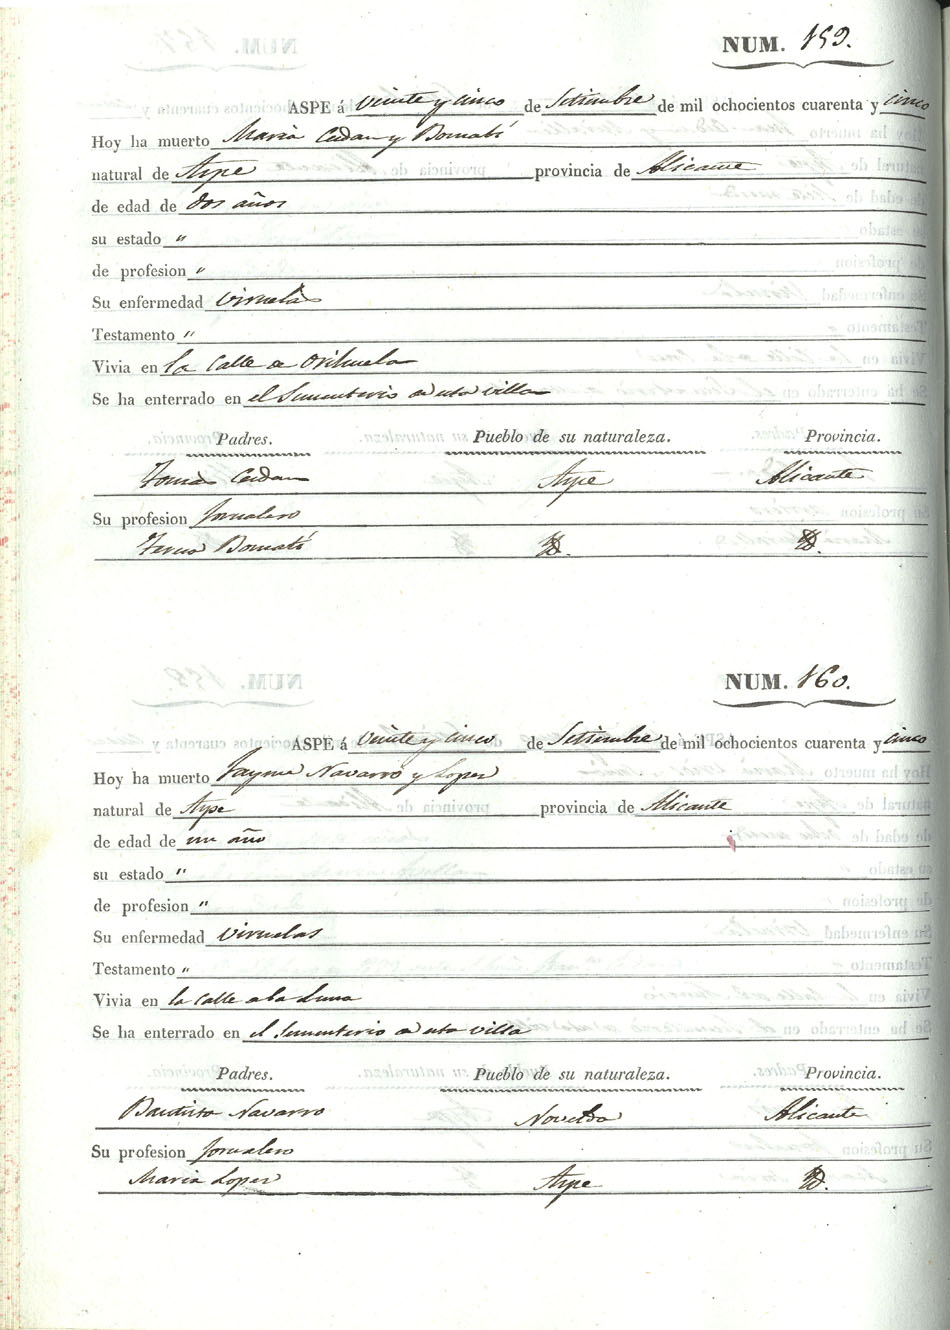 NUM. 159.
ASPE á Veinte y cinco de Setiembre de mil ochocientos cuarenta y cinco
Hoy ha muerto Maria Cerdan y Bornabé
natural de Aspe provincia de Alicante
de edad de dos años
su estado "
de profesion "
Su enfermedad Viruelas
Testamento "
Vivia en la Calle de Orihuela
Se ha enterrado en el Sementerio de esta villa
Padres. Pueblo de su naturaleza. Provincia.
Tomas Cerdan Aspe Alicante
Su profesion Jornalero
Bornabé Yd. Yd.
NUM. 160.
ASPE á Veinte y cinco de Setiembre de mil ochocientos cuarenta y cinco
Hoy ha muerto Jayme Navarro y Lopez
natural de Aspe provincia de Alicante
de edad de un año
su estado "
de profesion "
Su enfermedad Viruelas
Testamento "
Vivia en la Calle de la Luna
Se ha enterrado en el Sementerio de esta villa
Padres. Pueblo de su naturaleza. Provincia.
Bautista Navarro Novelda Alicante
Su profesion Jornalero
Maria Lopez Aspe Yd.